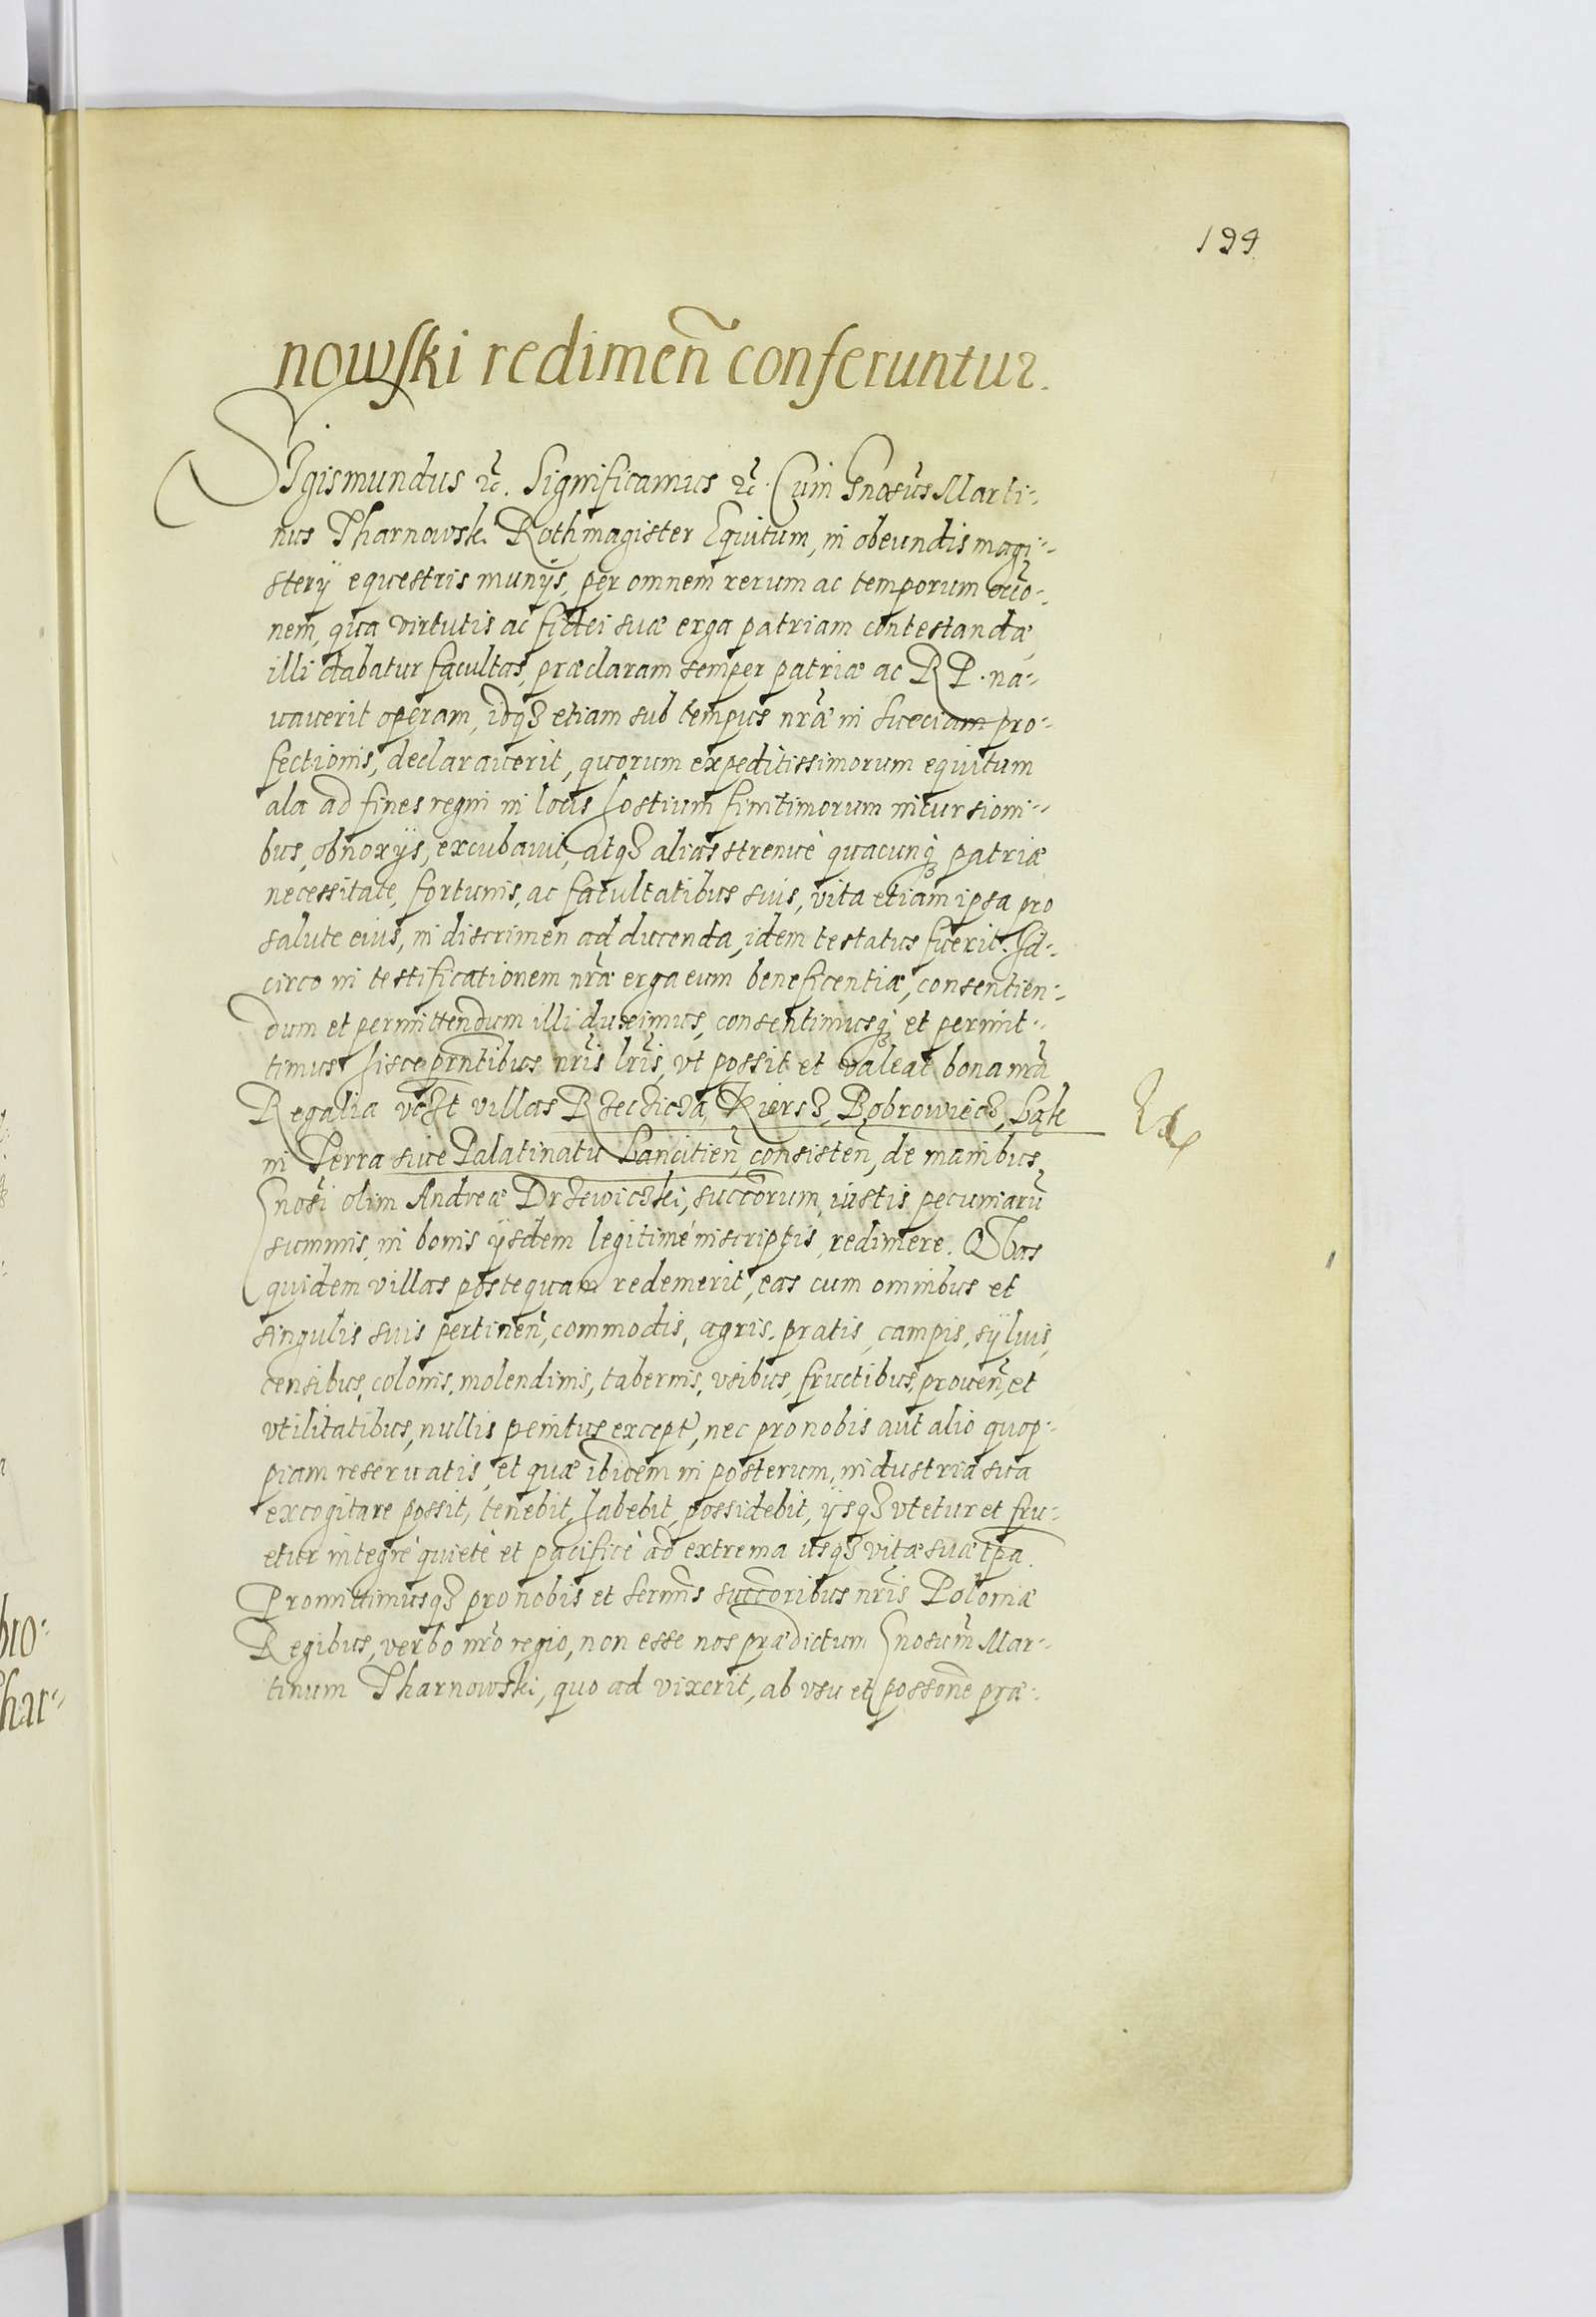 199
nowski redimeñ conferuntur.
Sigismundus ꝛc̃. Significamus ꝛc̃. Cum Gnosũs Marti-
nus Tharnowski Rothmagister Equitum, in obeundis magi-
sterÿ equestris munÿs, per omnem rerum ac temporum occõ-
nem, qua virtutis ac fidei suæ erga patriam contestandæ
illi dabatur facultas, præclaram semper patriæ ac R P. na-
uauerit operam, idqꝫ etiam sub tempus nr̃æ in Sueciam pro-
fectionis, declarauerit, quorum expeditissimorum equitum
ala ad fines regni in locis hostium finitimorum incursioni-
bus, obnoxÿs, excubauit, atqꝫ alias strenuè quacunqꝫ patriæ
necessitate, fortunis, ac facultatibus suis, vita etiam ipsa pro
salute eius, in discrimen adducenda, idem testatus fuerit. Id-
circo in testificationem nr̃æ erga eum beneficentiæ, consentien-
dum et permittendum illi duximus, consentimusqꝫ et permit-
timus hisce prñtibus nr̃is lr̃is, vt possit et valeat bona nr̃a
Regalia vꝫt villas Rzeczicza, Kiersz, Bobrowiecz, Łąk
in Terra siue Palatinatu Lancitieñ, consisteñ, de manibus
Gnosi olim Andreæ Drzewiczki, succõrum, iustis pecuniarũ
summis, in bonis ÿsdem legitimè inscriptis, redimere. Quas
quidem villas postequam redemerit, eas cum omnibus et
singulis suis pertineñ, commodis, agris, pratis, campis, sÿluis,
censibus, colonis, molendinis, tabernis, vsibus, fructibus, proueñ, et
vtilitatibus, nullis penitus except, nec pro nobis aut alio quop-
piam reseruatis, et quæ ibidem in posterum, industria sua
excogitare possit, tenebit, habebit, possidebit, ÿsqꝫ vtetur et fru-
etur integrè quietè et pacificè ad extrema usqꝫ vitæ suæ tp̃a.
Promittimusqꝫ pro nobis et serm̃is succõribus nr̃is Poloniæ
Regibus, verbo nr̃o regio, non esse nos prædictum Gnosum̃ Mar-
tinum Tharnowski, quo ad vixerit, ab vsu et possoñe præ-